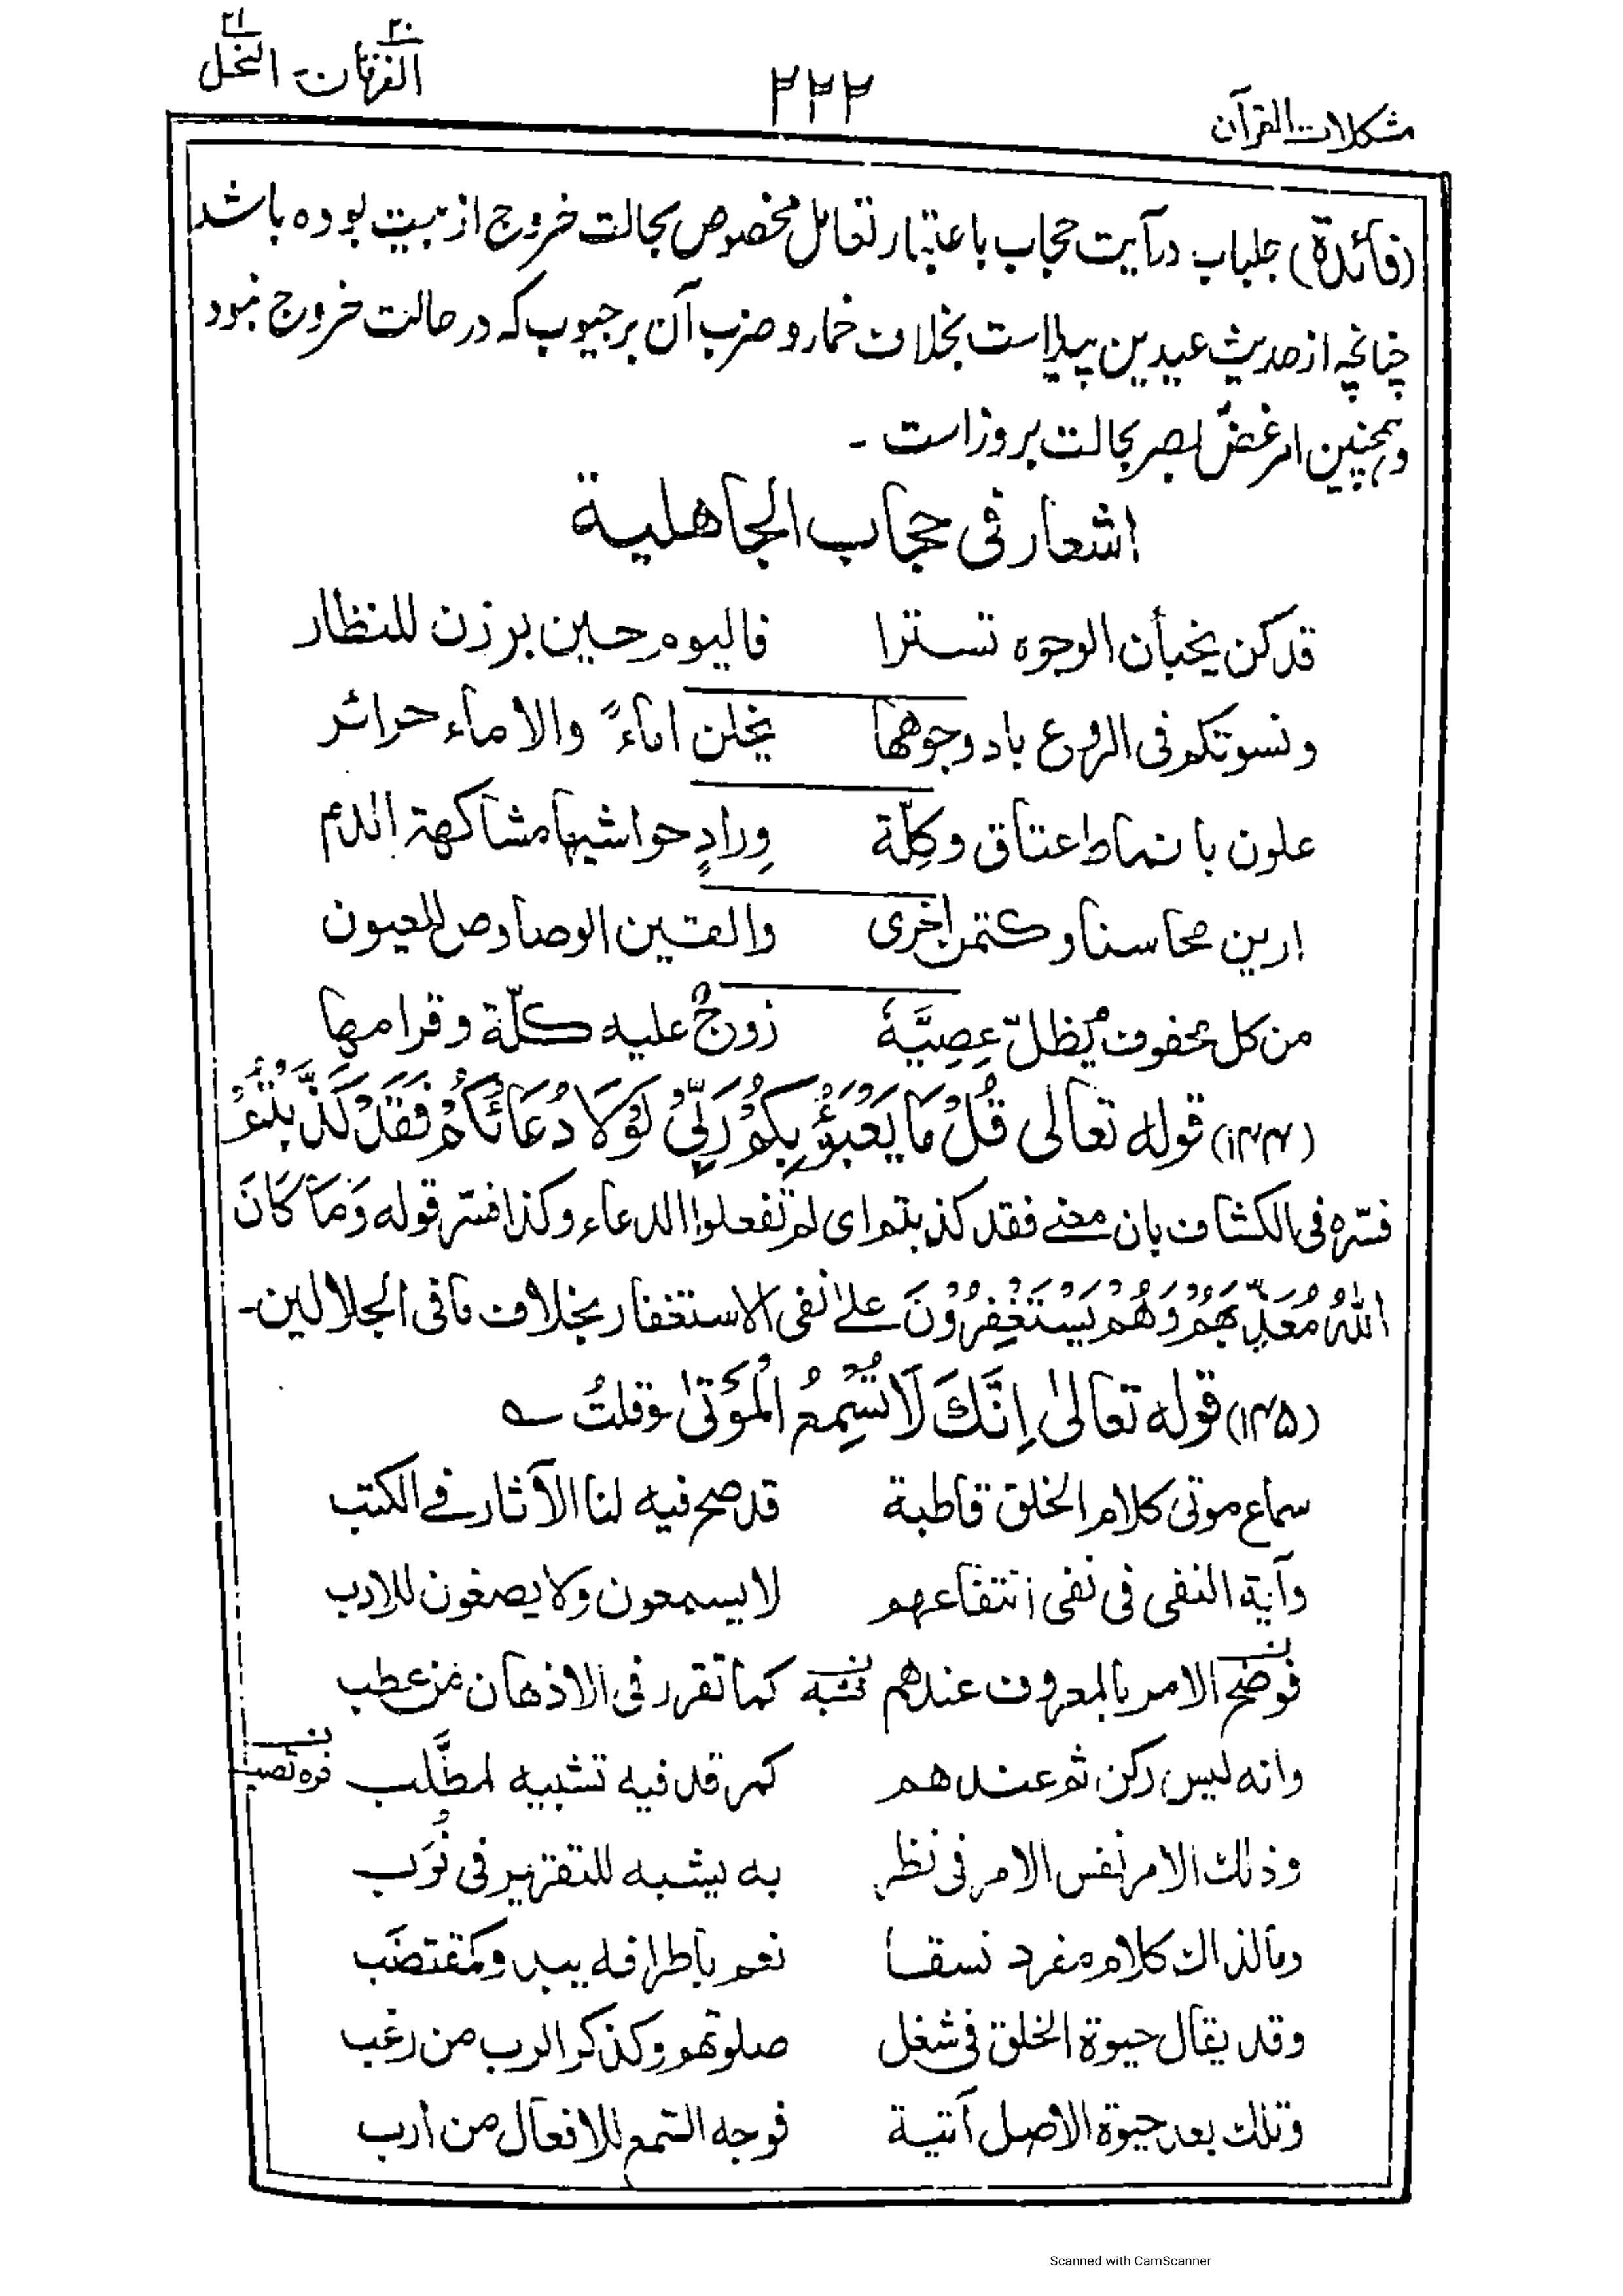 مشکلات القرآن ۲۲۲ ۲۰ الفرقان - النحل ۲۱
(فائدة) جلباب در آیت حجاب باعتبار تعامل مخصوص بحالت خروج از بیت بوده باشد
چنانچه از حدیث عیدین پیدا است بخلاف خمار و ضرب آن بر جیوب که در حالت خروج نبود
و ہمچنین امر غضّ بصر بحالت بروز است ۔
اشعار فی حجاب الجاهلیة
قد کن یخبأن الوجوه تسترا فالیوم حین برزن للنظار
ونسوتکم فی الروع باد وجوهها یخلن اماءً والاماء حرائر
علون بانماط عتاق وکِلّة وِرادٍ حواشیها مشاکهة الدم
ارین محاسنا وکتمن اخری والقین الوصاوص للعیون
من کل محفوف یُظلّ عِصِیَّهٗ زوجٌ علیه کلّة وقرامها
(۱۴۴) قوله تعالی قُلْ مَا یَعْبَؤُ بِکُمْ رَبِّیْ لَوْلَا دُعَائُکُمْ فَقَدْ کَذَّبْتُمْ
فسّره فی الکشاف بان معنے فقد کذبتم ای لم تفعلوا الدعاء وکذا فسّر قوله وَمَا کَانَ
اللّٰهُ مُعَذِّبَهُمْ وَهُمْ یَسْتَغْفِرُوْنَ علے نفی الاستغفار بخلاف مافی الجلالین۔
(۱۴۵) قوله تعالیٰ اِنَّكَ لَا تُسْمِعُ الْمَوْتٰی وقلتُ ؎
سماع موتی کلام الخلق قاطبة قد صح فیه لنا الآثار فے الکتب
وآیة النفی فی نفی انتفاعهم لا یسمعون ولا یصغون للادب
فوضح الامر بالمعروف عندهم کما تقرر فی الاذهان من عطب
وانه لیس رکن ثم عندهم کمر قد فیه تشبیه لمطَّلب
وذلك الامر نفس الامر فی نظر به یشبه للتقریر فی نُوَب
ومالذاك کلام مفرد نسقا نعم باطرافه یبدو کمقتضَب
وقد یقال حیوة الخلق فی شغل صلوتهم وکذکر الرب من رغب
وتلك بعد حیوة الاصل آتیة فوجه السمع للافعال من ارب
Scanned with CamScanner